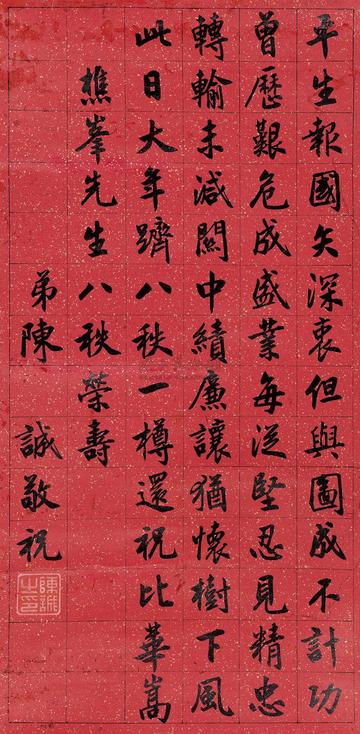 平生報國矢深衷但與圖成不計功
曾歷艱危成盛業每從堅忍見精忠
轉輸未減關中績廉讓猶懷樹下風
此日大年躋八秩一樽還祝比華嵩
樵峯先生八秩榮壽
弟陳 誠敬祝
陳誠之印